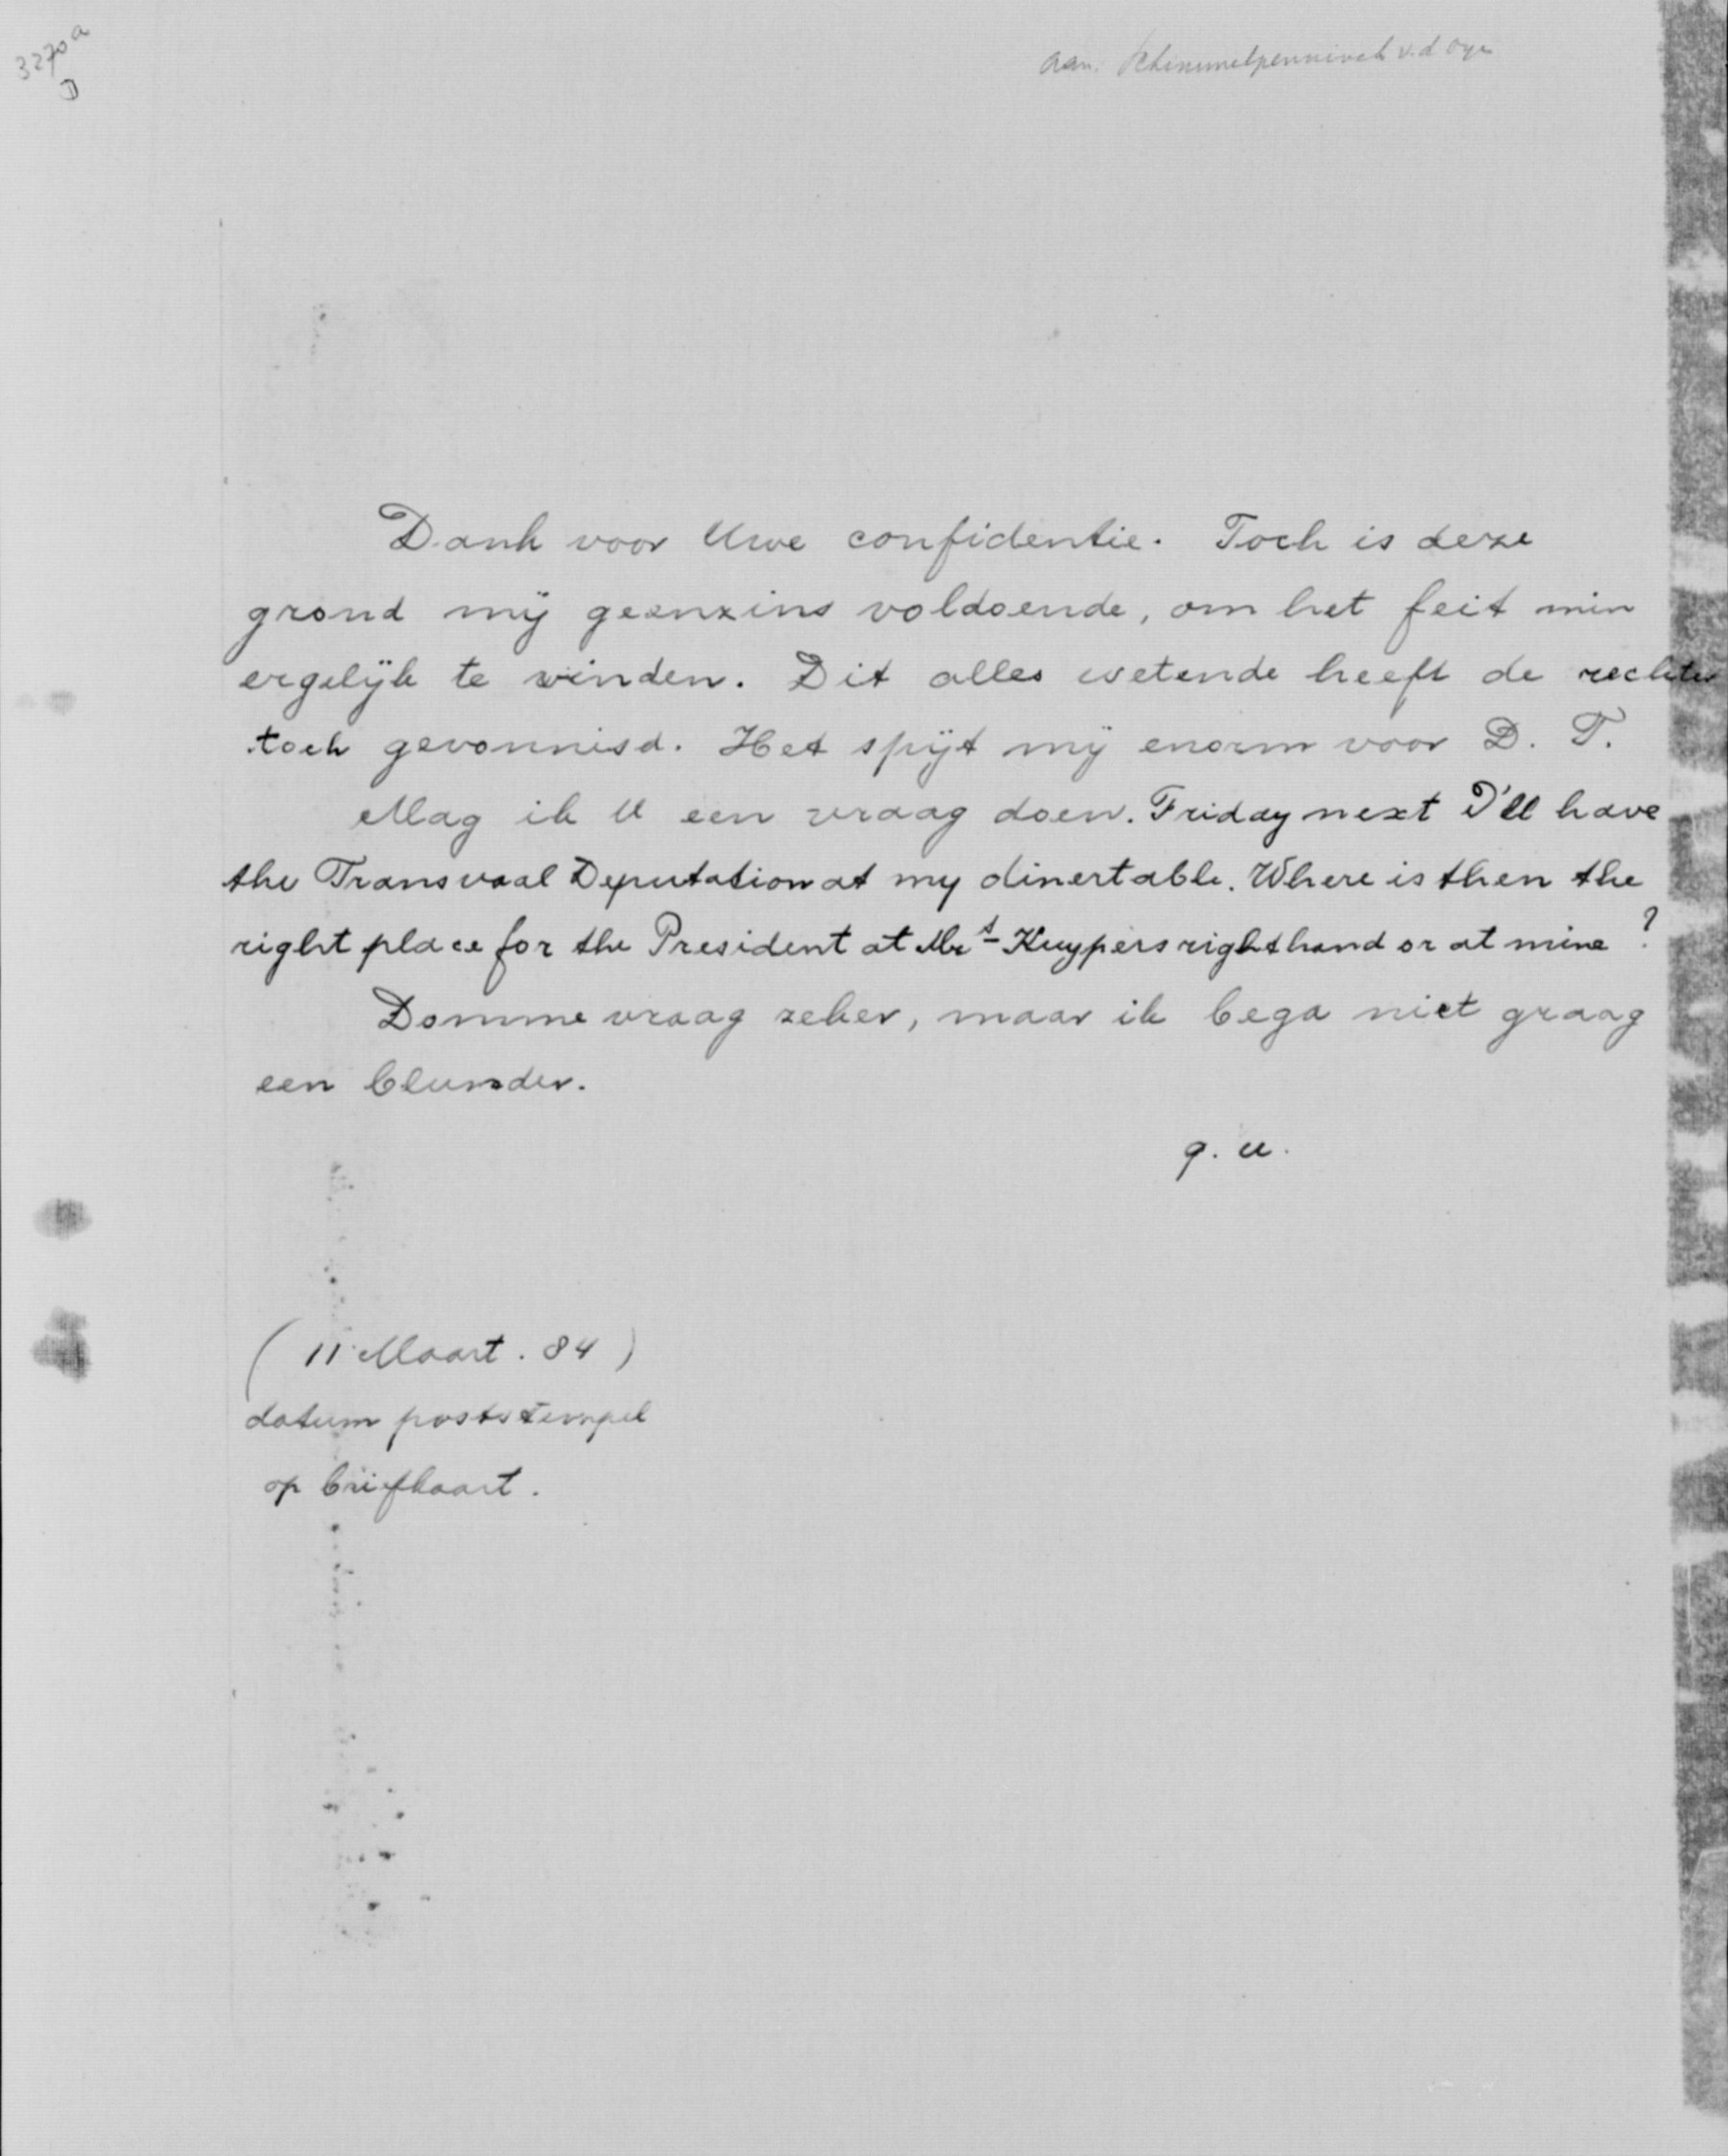 3270a
D
aan. Schimmelpenninck v.d Oye
Dank voor Uwe confidentie. Toch is deze
grond mij geenzins voldoende, om het feit min
ergelijk te vinden. Dit alles wetende heeft de rechter
toch gevonnisd. Het spijt mij enorm voor D. T.
Mag ik U een vraag doen. Friday next I'll have
the Transvaal Deputation at my dinertable. Where is then the
right place for the President at Mrs Kuypers righthand or at mine?
Domme vraag zeker, maar ik bega niet graag
een blunder.
g. u.
(11 Maart. 84)
datum poststempel
op briefkaart.